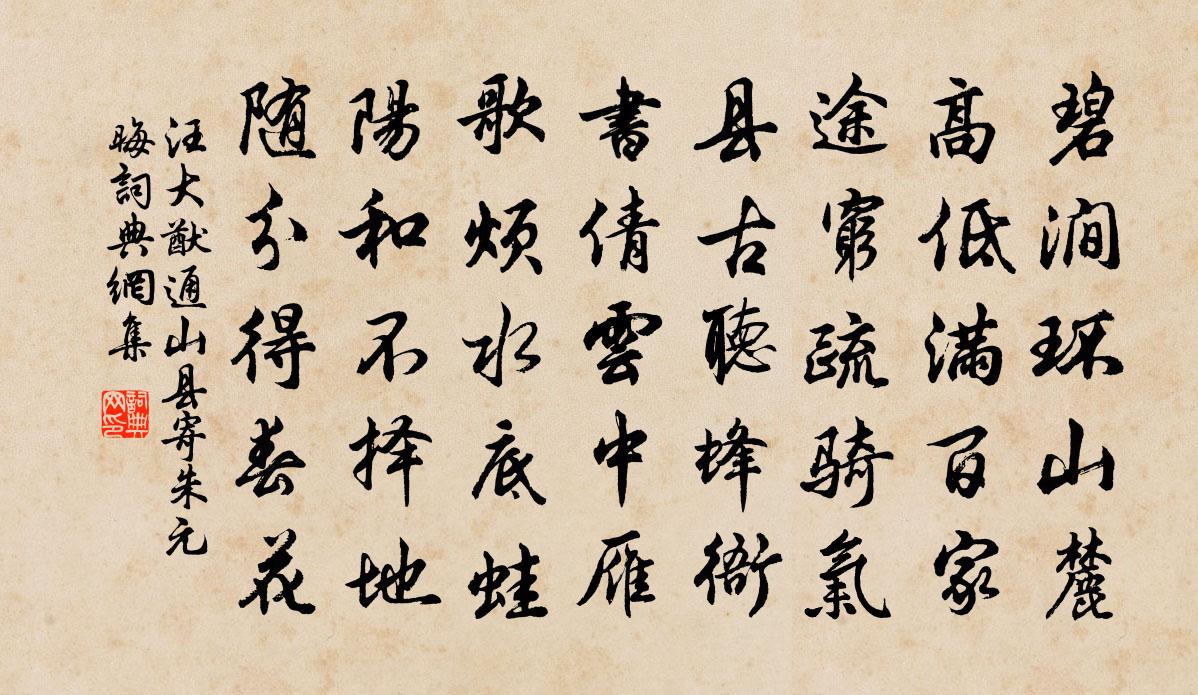 碧澗环山麓
高低满百家
途窮疏骑氣
县古聽蜂衙
書倩雲中雁
歌烦水底蛙
陽和不择地
随分得春花
汪大猷通山县寄朱元
晦詞典網集
詞典
网印